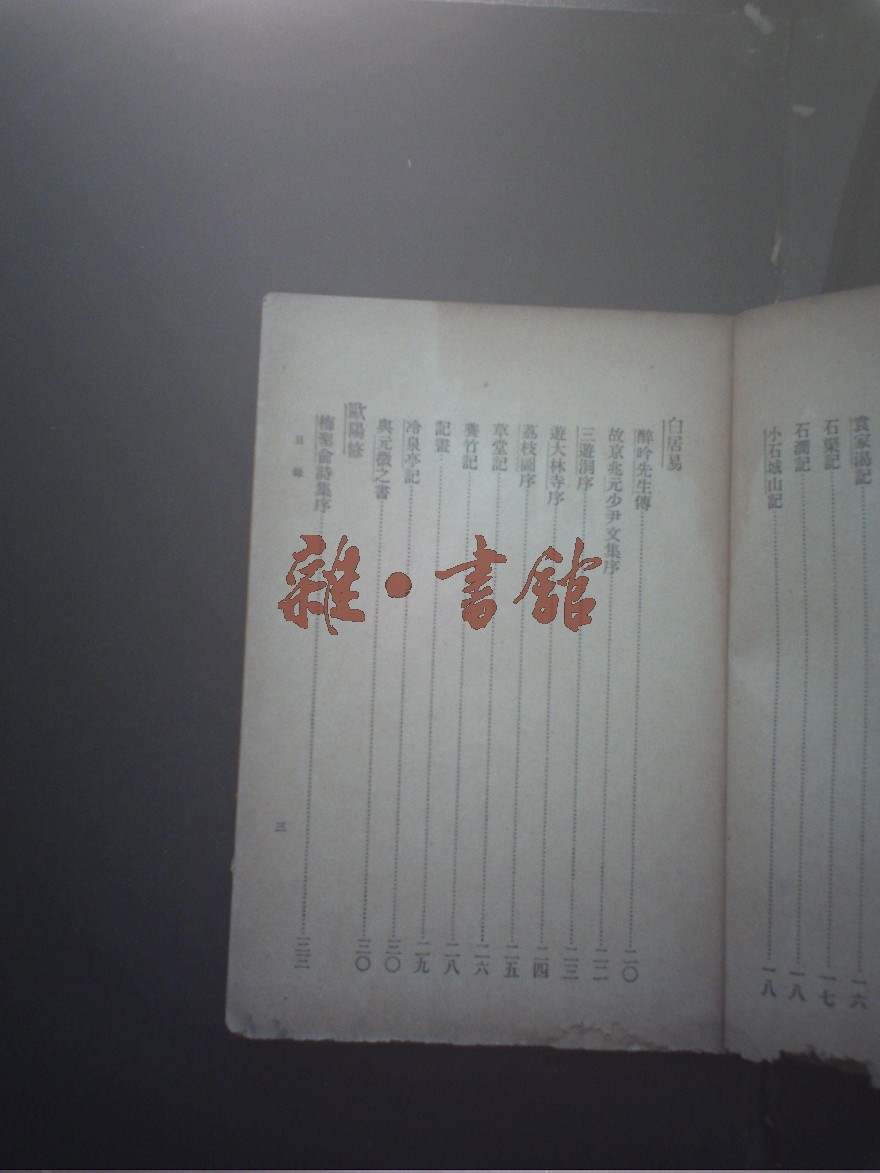 袁家渴記……一六
石渠記……一七
石澗記……一八
小石城山記……一八
白居易
醉吟先生傳……二〇
故京兆元少尹文集序……二二
三遊洞序……二三
遊大林寺序……二四
荔枝圖序……二五
草堂記……二六
養竹記……二八
記畫……二九
冷泉亭記……三〇
與元微之書……三〇
歐陽修
梅聖俞詩集序……三三
目錄
三
雜·書館